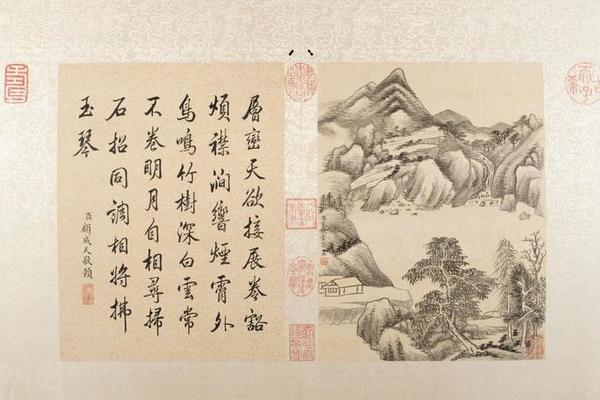 層巒天欲接展卷豁
煩襟澗響煙霄外
鳥鳴竹樹深白雲常
不卷明月自相尋掃
石招同調相將拂
玉琴
臣顧成天敬題